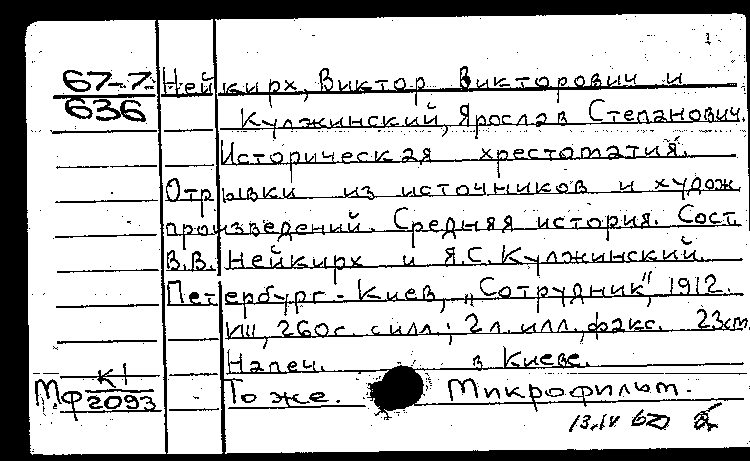 1
67-7 Нейкирх, Виктор Викторович и
636 Кулжинский, Ярослав Степанович.
Историческая хрестоматия.
Отрывки из источников и худож.
произведений. Средняя история. Сост.
В.В. Нейкирх и Я.С. Кулжинский.
Петербург - Киев, „Сотрудник", 1912.
VIII, 260с. с илл.; 2л. илл., факс. 23см.
Напеч. в Киеве.
Мф К1/2093 То же. Микрофильм.
13.IV 67